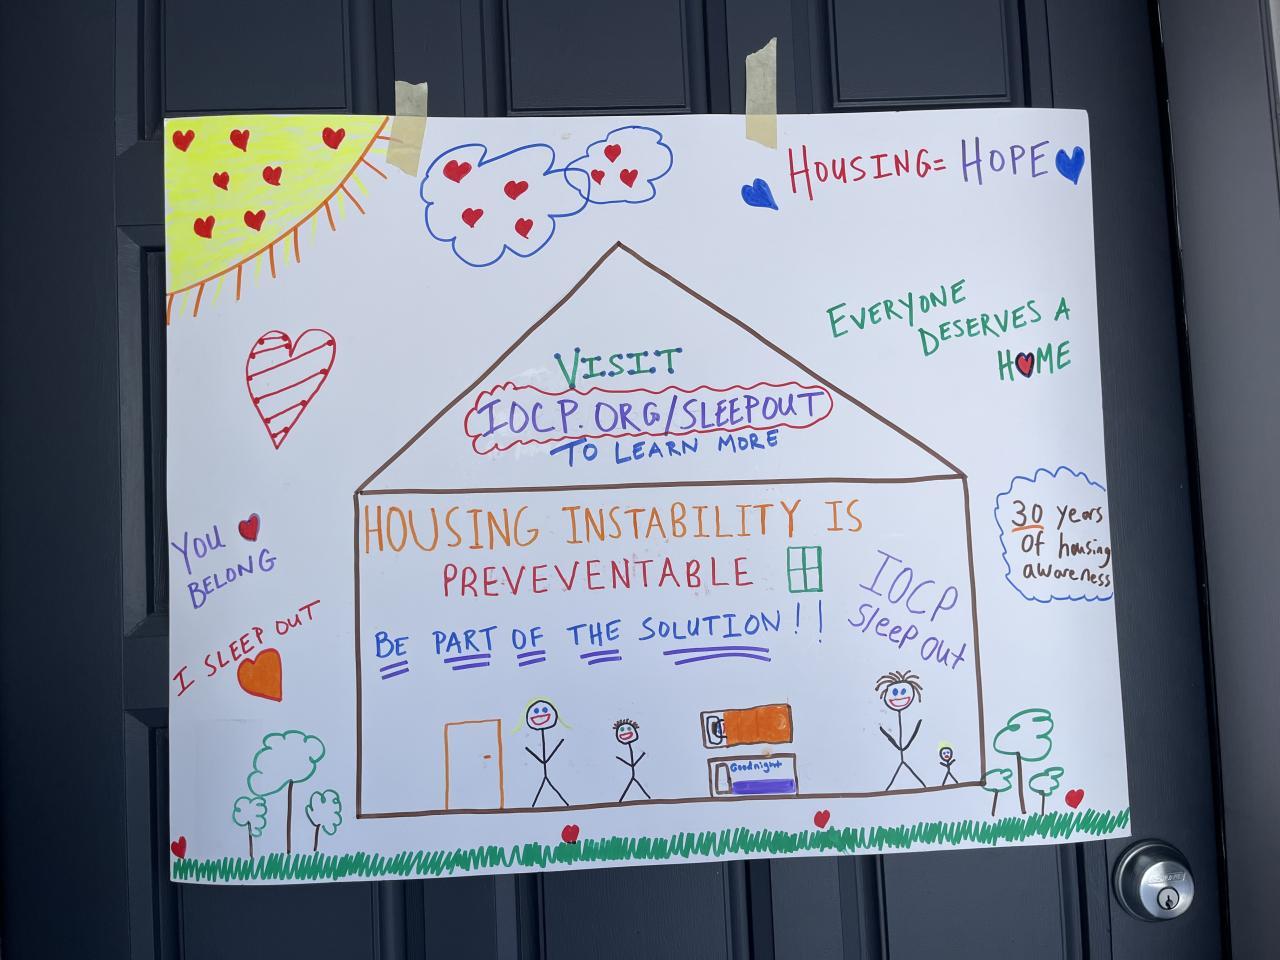 HOUSING= HOPE
EVERYONE
DESERVES A
HOME
VISIT
IOCP.ORG/SLEEPOUT
TO LEARN MORE
HOUSING INSTABILITY IS
PREVEVENTABLE
BE PART OF THE SOLUTION!!
IOCP
Sleep out
30 years
Of housing
awareness
YOU
BELONG
I SLEEP OUT
Goodnight